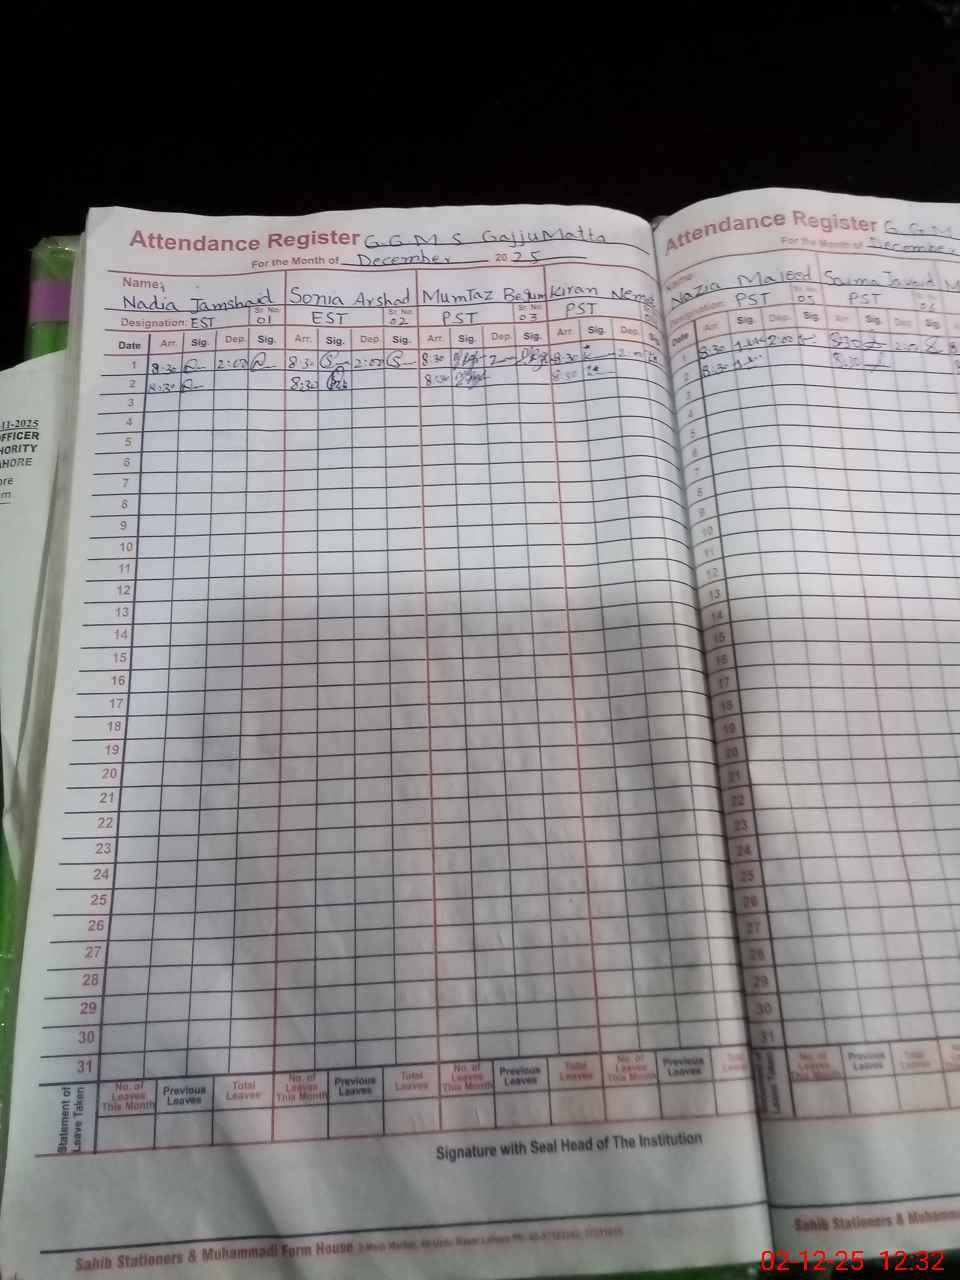 Attendance Register G.G.M S GajjuMatta
For the Month of December 2025
Name:
Nadia Jamshaid Sonia Arshad Mumtaz Begum Kiran
Designation: EST Sr. No. 01 EST Sr. No. 02 PST Sr. No. 03 PST
Date Arr. Sig. Dep. Sig. Arr. Sig. Dep. Sig. Arr. Sig. Dep. Sig. Arr. Sig. Dep.
1 8:30 2:00 8:30 2:00 8:30 8:30
2 8:30 8:30 8:30 8:30
3
4
5
6
7
8
9
10
11
12
13
14
15
16
17
18
19
20
21
22
23
24
25
26
27
28
29
30
31
Statement of Leave Taken
No. of Leaves This Month Previous Leaves Total Leaves No. of Leaves This Month Previous Leaves Total Leaves No. of Leaves This Month Previous Leaves Total Leaves No. of Leaves This Month Previous Leaves
Signature with Seal Head of The Institution
Sahib Stationers & Muhammadi Form House
Attendance Register G.G.M
For the Month of December
Name:
Nazia Majeed
Designation: PST Sr. No. 05 PST
Date Arr. Sig. Dep. Sig. Arr. Sig. Dep. Sig.
1 8:30 2:00 8:30 2:00
2 8:30 8:30
3
4
5
6
7
8
9
10
11
12
13
14
15
16
17
18
19
20
21
22
23
24
25
26
27
28
29
30
31
No. of Leaves This Month Previous Leaves Total Leaves
Sahib Stationers &
11-2025
OFFICER
HORITY
AHORE
02-12-25 12:32